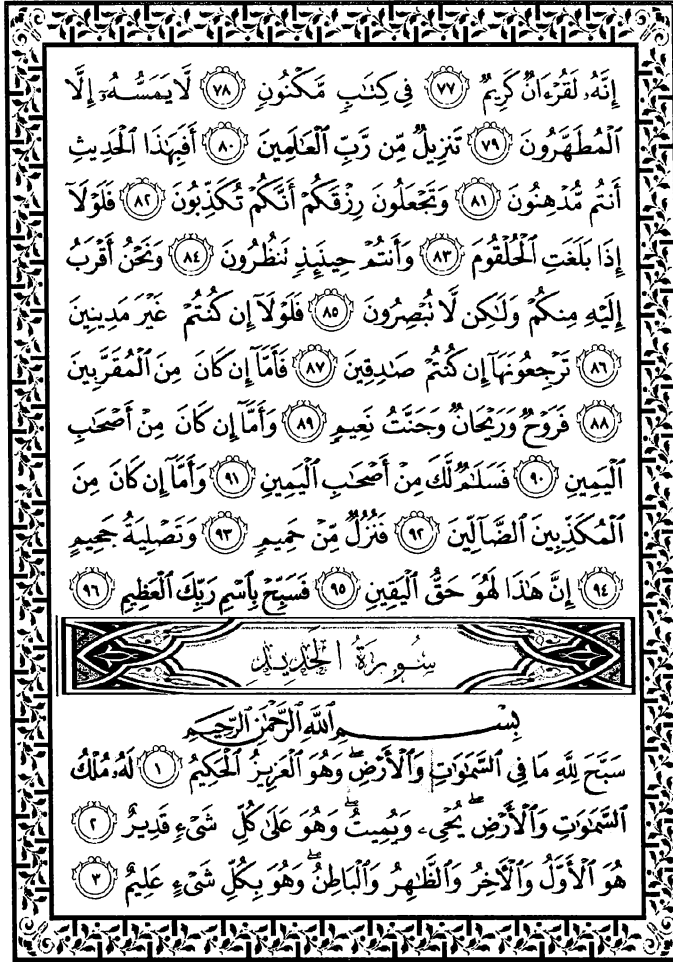 إِنَّهُۥ لَقُرْءَانٌ كَرِيمٌ ۝٧٧ فِى كِتَٰبٍ مَّكْنُونٍ ۝٧٨ لَّا يَمَسُّهُۥٓ إِلَّا
ٱلْمُطَهَّرُونَ ۝٧٩ تَنزِيلٌ مِّن رَّبِّ ٱلْعَٰلَمِينَ ۝٨٠ أَفَبِهَٰذَا ٱلْحَدِيثِ
أَنتُم مُّدْهِنُونَ ۝٨١ وَتَجْعَلُونَ رِزْقَكُمْ أَنَّكُمْ تُكَذِّبُونَ ۝٨٢ فَلَوْلَآ
إِذَا بَلَغَتِ ٱلْحُلْقُومَ ۝٨٣ وَأَنتُمْ حِينَئِذٍ تَنظُرُونَ ۝٨٤ وَنَحْنُ أَقْرَبُ
إِلَيْهِ مِنكُمْ وَلَٰكِن لَّا تُبْصِرُونَ ۝٨٥ فَلَوْلَآ إِن كُنتُمْ غَيْرَ مَدِينِينَ
۝٨٦ تَرْجِعُونَهَآ إِن كُنتُمْ صَٰدِقِينَ ۝٨٧ فَأَمَّآ إِن كَانَ مِنَ ٱلْمُقَرَّبِينَ
۝٨٨ فَرَوْحٌ وَرَيْحَانٌ وَجَنَّتُ نَعِيمٍ ۝٨٩ وَأَمَّآ إِن كَانَ مِنْ أَصْحَٰبِ
ٱلْيَمِينِ ۝٩٠ فَسَلَٰمٌ لَّكَ مِنْ أَصْحَٰبِ ٱلْيَمِينِ ۝٩١ وَأَمَّآ إِن كَانَ مِنَ
ٱلْمُكَذِّبِينَ ٱلضَّآلِّينَ ۝٩٢ فَنُزُلٌ مِّنْ حَمِيمٍ ۝٩٣ وَتَصْلِيَةُ جَحِيمٍ
۝٩٤ إِنَّ هَٰذَا لَهُوَ حَقُّ ٱلْيَقِينِ ۝٩٥ فَسَبِّحْ بِٱسْمِ رَبِّكَ ٱلْعَظِيمِ ۝٩٦
سُورَةُ الحَدِيدِ
بِسْمِ ٱللَّهِ ٱلرَّحْمَٰنِ ٱلرَّحِيمِ
سَبَّحَ لِلَّهِ مَا فِى ٱلسَّمَٰوَٰتِ وَٱلْأَرْضِ ۖ وَهُوَ ٱلْعَزِيزُ ٱلْحَكِيمُ ۝١ لَهُۥ مُلْكُ
ٱلسَّمَٰوَٰتِ وَٱلْأَرْضِ ۖ يُحْىِۦ وَيُمِيتُ ۖ وَهُوَ عَلَىٰ كُلِّ شَىْءٍ قَدِيرٌ ۝٢
هُوَ ٱلْأَوَّلُ وَٱلْءَاخِرُ وَٱلظَّٰهِرُ وَٱلْبَاطِنُ ۖ وَهُوَ بِكُلِّ شَىْءٍ عَلِيمٌ ۝٣